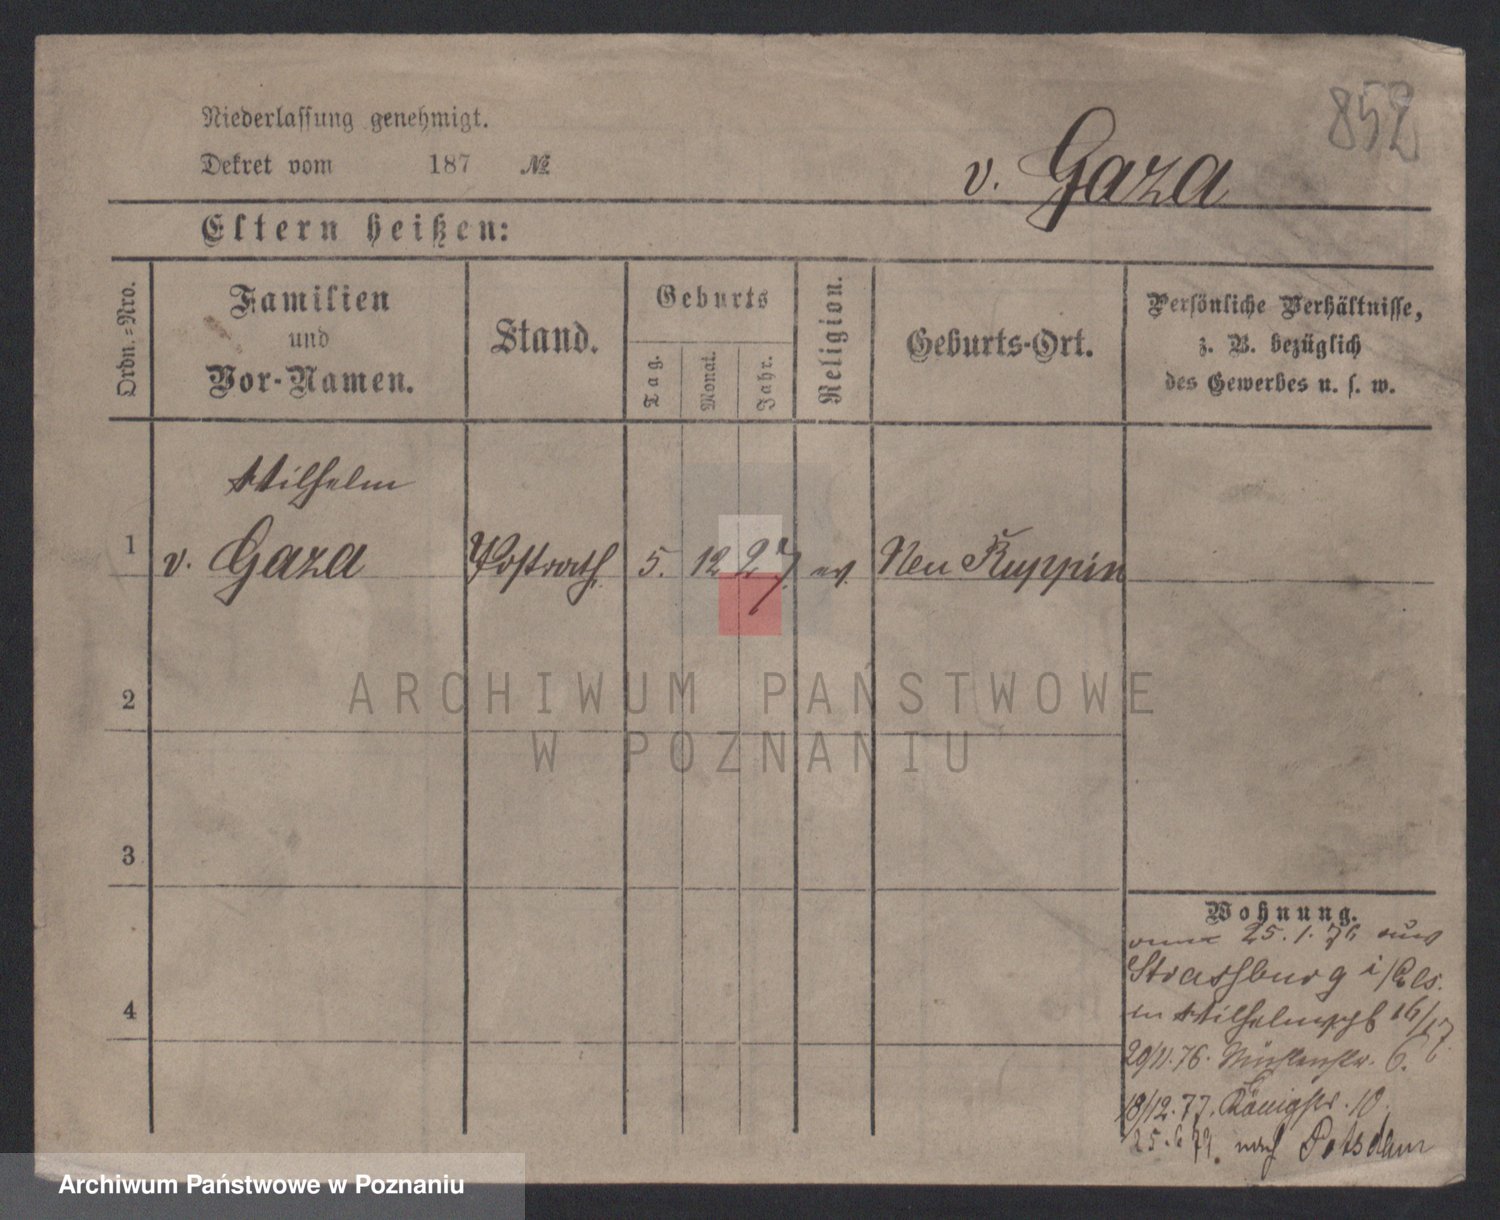 852
Niederlassung genehmigt.
Dekret vom 187 №
v. Gaza
Eltern heißen:
Ordn.=Nro.
Familien
und
Vor-Namen.
Stand.
Geburts
Tag.
Monat.
Jahr.
Religion.
Geburts-Ort.
Persönliche Verhältnisse,
z. B. bezüglich
des Gewerbes u. s. w.
Wilhelm
1 v. Gaza Postrath 5. 12 27. ev. Neu Ruppin
ARCHIWUM PAŃSTWOWE
W POZNANIU
2
3
4
Wohnung.
25.1.76 aus
Strassburg i/Els.
in Wilhelmspl 16/17
29/11.76. Mühlenstr. 6.
18/12.77. Königstr. 10.
25.6 79. nach Potsdam
Archiwum Państwowe w Poznaniu